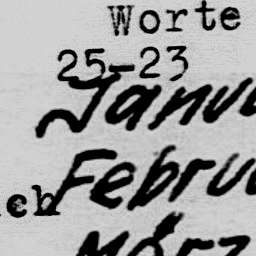 Worte
25-23
Janu
Febru
ch
März